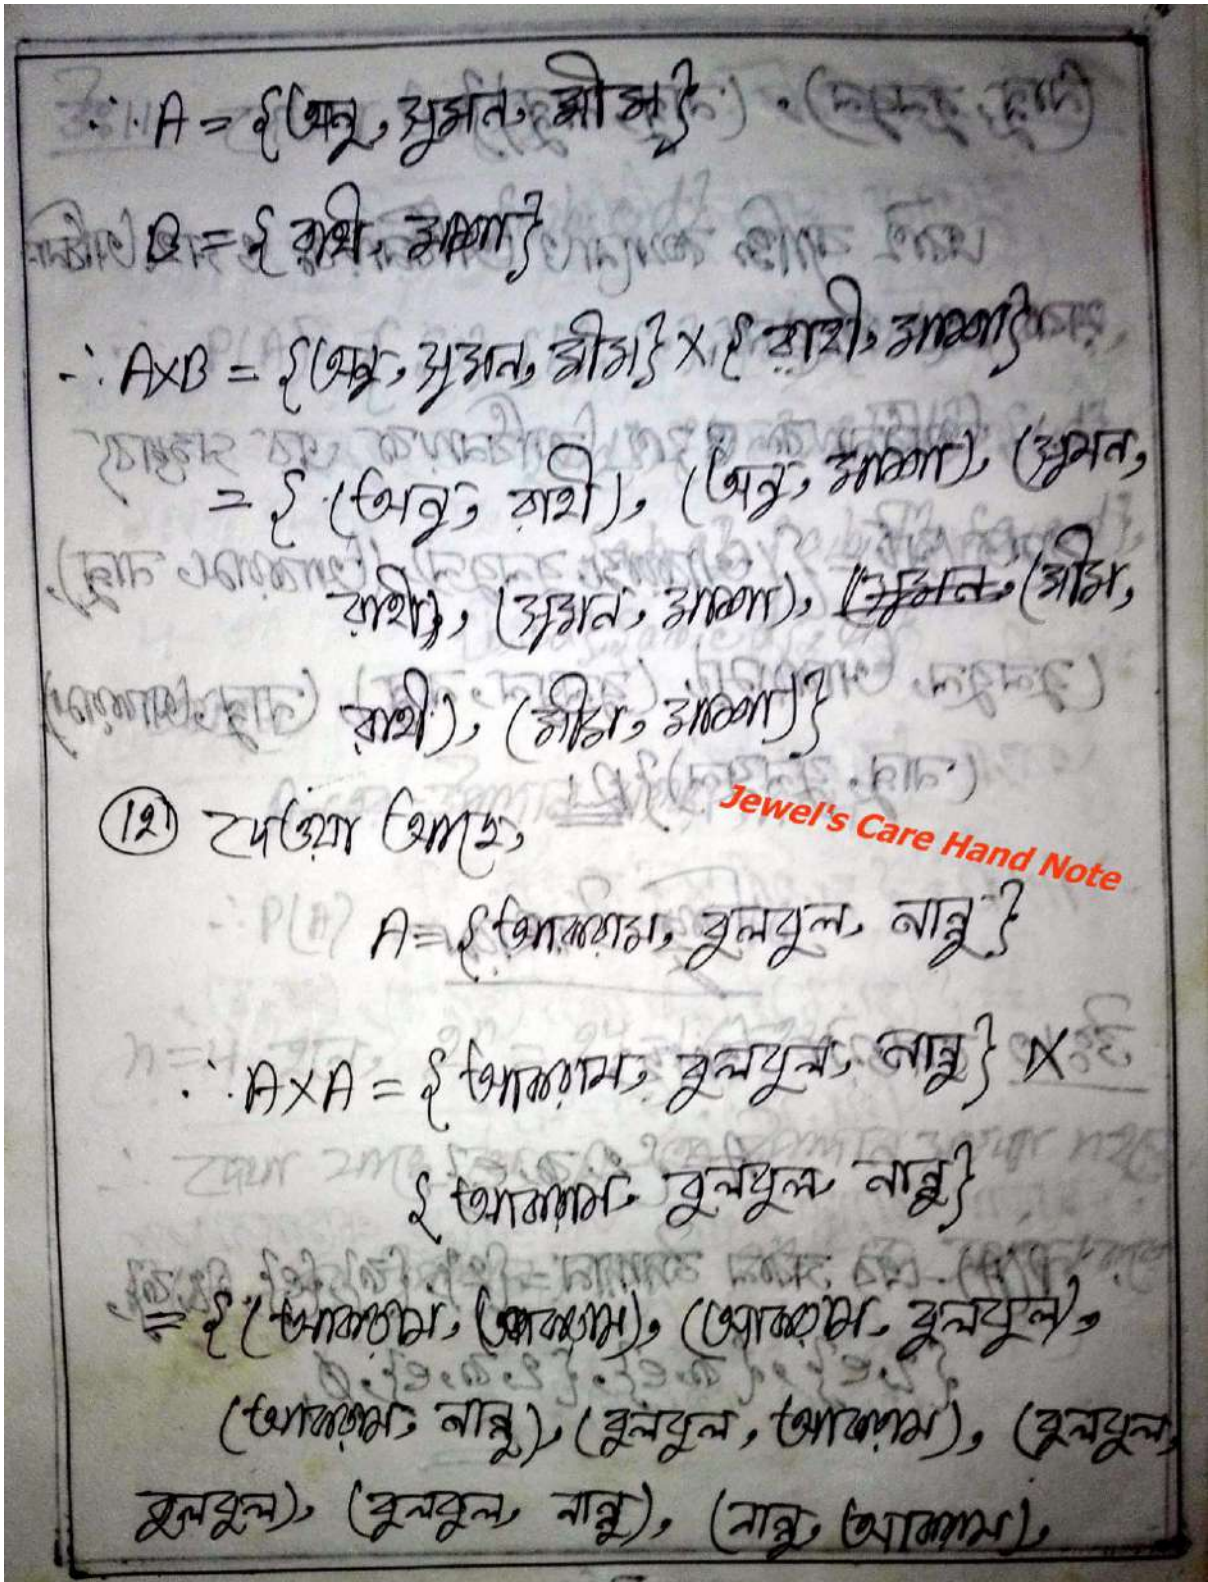 ∴ A = {অনু, সুমন, মীম}
B = {রাখী, মালা}
∴ A×B = {অনু, সুমন, মীম} × {রাখী, মালা}
= {(অনু, রাখী), (অনু, মালা), (সুমন,
রাখী), (সুমন, মালা), (মীম,
রাখী), (মীম, মালা)}
(12) দেওয়া আছে,
Jewel's Care Hand Note
A = {আকরাম, বুলবুল, নান্নু}
∴ A×A = {আকরাম, বুলবুল, নান্নু} ×
{আকরাম, বুলবুল, নান্নু}
= {(আকরাম, আকরাম), (আকরাম, বুলবুল),
(আকরাম, নান্নু), (বুলবুল, আকরাম), (বুলবুল,
বুলবুল), (বুলবুল, নান্নু), (নান্নু, আকরাম),